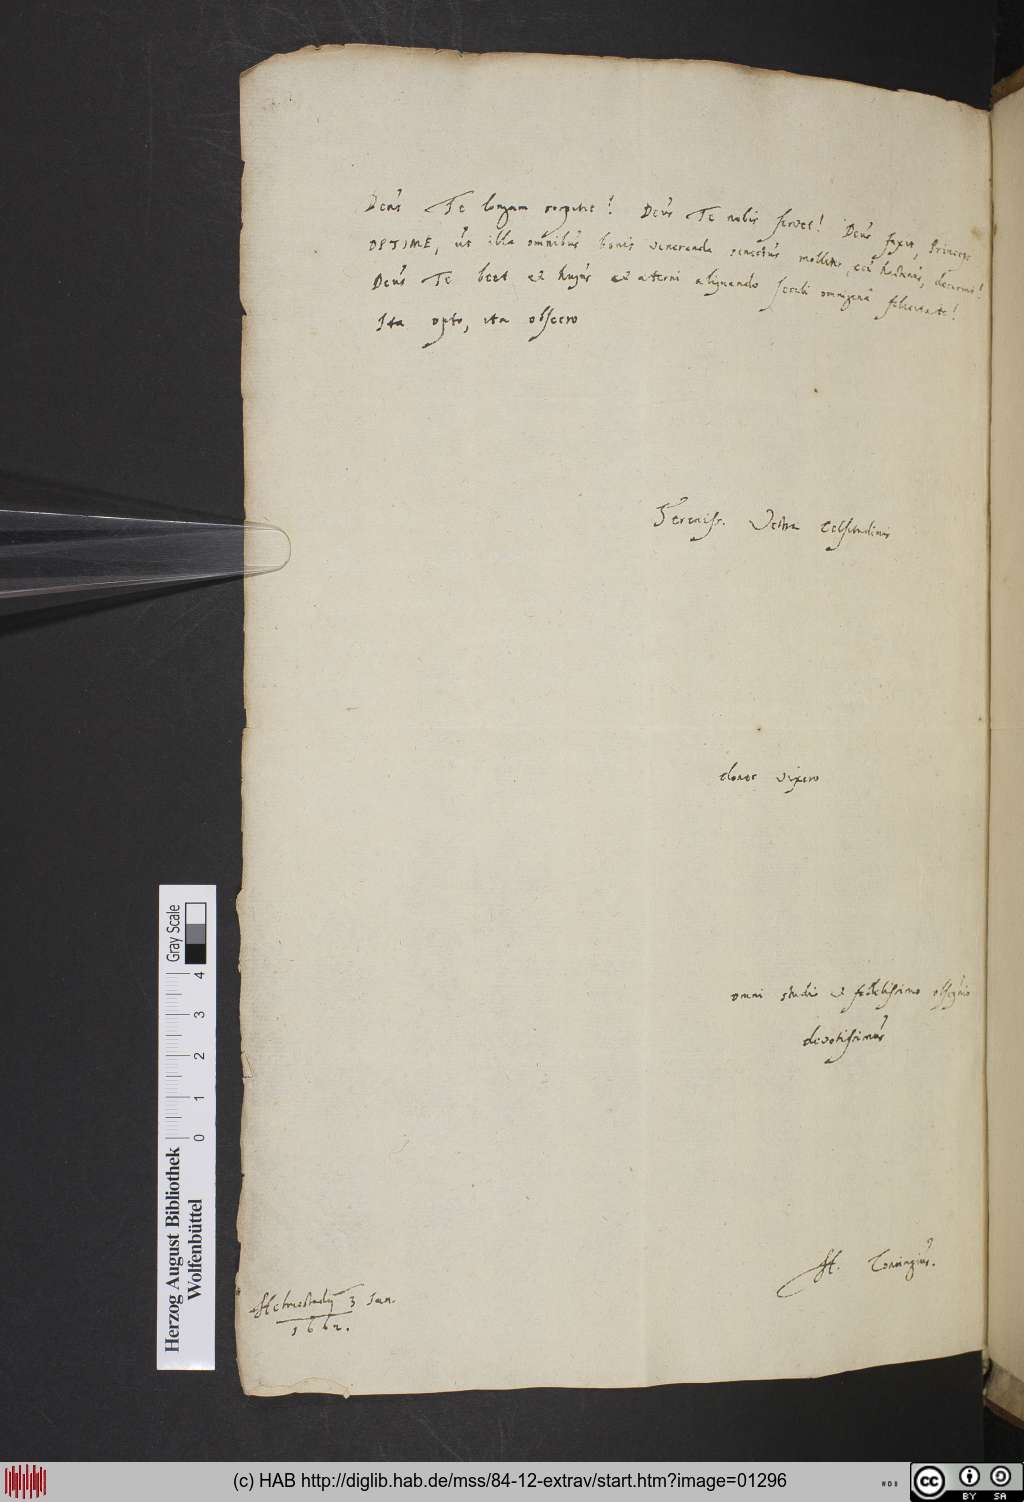 Deus Te longum sospitet! Deus Te nobis servet! Deus faxit, Princeps
OPTIME, ut illa omnibus bonis veneranda senectus molliter, ceu hactenus, decurrat!
Deus Te beet et hujus et aeterni aliquando seculi omnigena felicitate!
Ita opto, ita obsecro
Sereniss. Vestrae Celsitudinis
donec vixero
omni studio & fidelissimo obsequio
devotissimus
H. Conringius.
Helmestadij 3 Jan.
1662.
Herzog August Bibliothek
Wolfenbüttel
0 1 2 3 4
Gray Scale
(c) HAB http://diglib.hab.de/mss/84-12-extrav/start.htm?image=01296
WDB
cc
BY SA